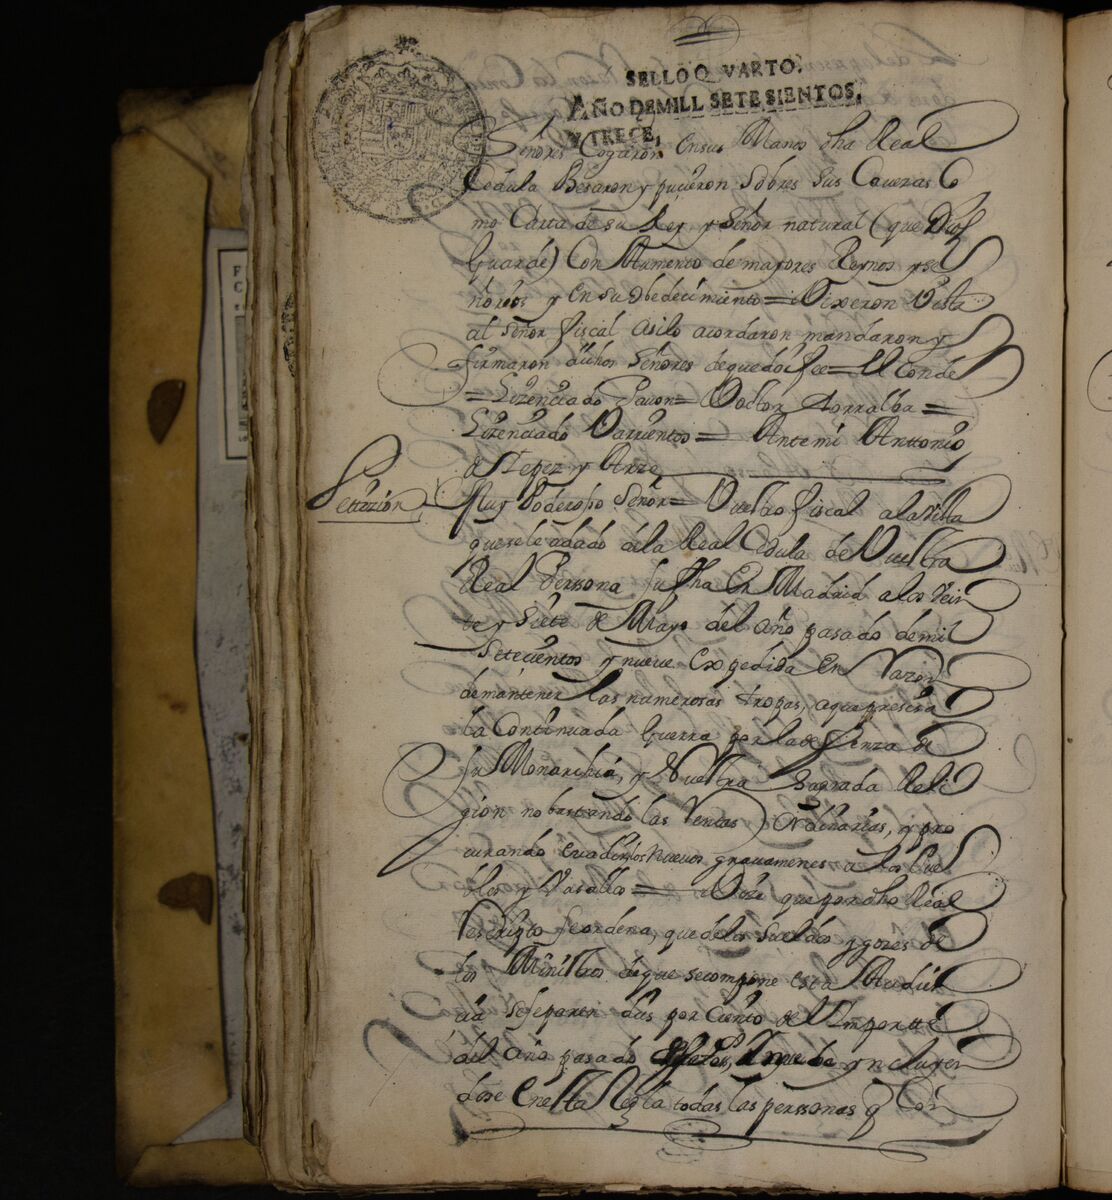 SELLO QVARTO.
AÑO DE MILL SETESIENTOS,
Y TRECE,
Señores Cogieron Ensus Manos dha Real
Cedula Besaron y pucieron Sobres Sus Caveras Co
mo Carta de su Rey y Señor natural (que Dios
Guarde) Con Aumento de mayores Reynos y se
ñorios y En su Obedecimiento = Dixeron Vista
al Señor fiscal asilo acordaron mandaron y
firmaron dichos Señores dequedoi fee = El Conde
= Lizenciado Pavon = Doctor Torralba =
Lizenciado Varrientos = Antemi Anttonio
de Yepez y Arze
Petizión
Muy Poderoso Señor = Vuestro fiscal ala Vista
que sele adado dela Real Cedula de Vuestra
Real Perssona su fha En Madrid alos Vein
te y Siete de Mayo del año pasado demil
Setecientos y nueve Expedida En Razon
demantener las numerosas tropas, aque precisa
la Continuada Guerra por la defenza de
su Monarchia, y Nuestra Sagrada Reli
gion no bastando las Rentas Ordinarias, y pro
curando evadirlos Nuevos gravamenes a los Pue
blos y Vasallos = Dize que por dho Real
Rescripto se ordena, que delos Sueldos y gozes de
los Ministros deque secompone esta Audien
cia Seseparen dies por Ciento del Importte
del año pasado
dose Enesta Regla todas las perssonas q Con